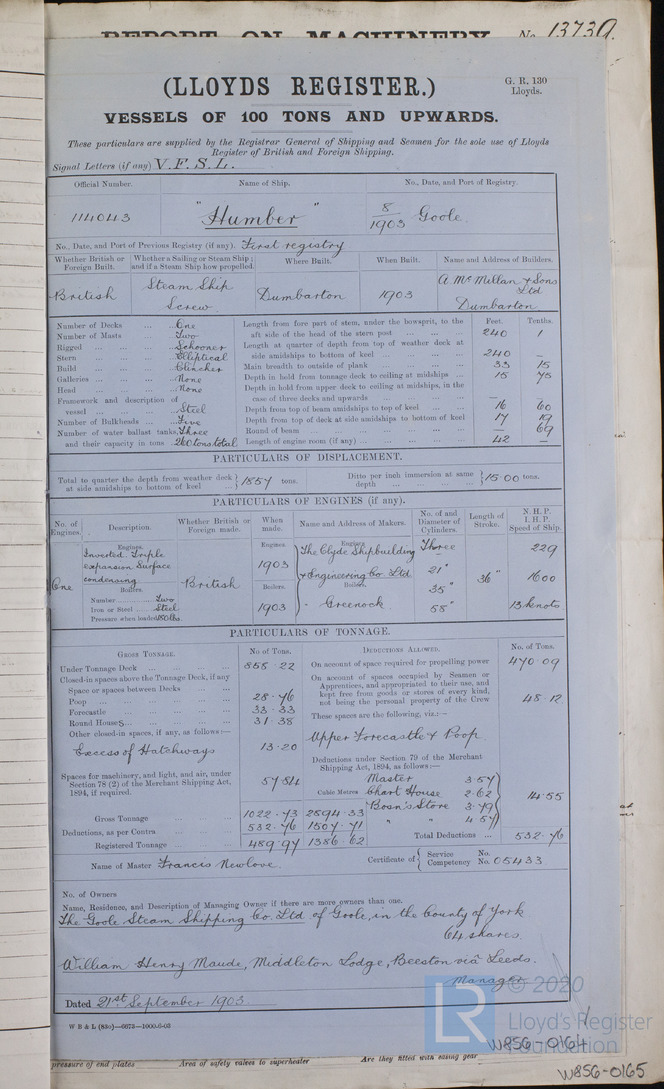 REPORT ON MACHINERY No. 13739.
(LLOYDS REGISTER.)
G. R. 130
Lloyds.
VESSELS OF 100 TONS AND UPWARDS.
These particulars are supplied by the Registrar General of Shipping and Seamen for the sole use of Lloyds
Register of British and Foreign Shipping.
Signal Letters (if any) V. F. S. L.
Official Number. Name of Ship. No., Date, and Port of Registry.
114043 "Humber" 8/1903 Goole.
No., Date, and Port of Previous Registry (if any). First registry
Whether British or Foreign Built. Whether a Sailing or Steam Ship; and if a Steam Ship how propelled. Where Built. When Built. Name and Address of Builders.
British Steam Ship Screw. Dumbarton 1903 A McMillan & Sons Ltd Dumbarton
Number of Decks ... One
Number of Masts ... Two
Rigged ... Schooner
Stern ... Elliptical
Build ... Clincher
Galleries ... None
Head ... None
Framework and description of
vessel ... Steel
Number of Bulkheads ... Five
Number of water ballast tanks, Three
and their capacity in tons 260 tons total
Feet. Tenths.
Length from fore part of stem, under the bowsprit, to the
aft side of the head of the stern post ... 240 1
Length at quarter of depth from top of weather deck at
side amidships to bottom of keel ... 240 –
Main breadth to outside of plank ... 33 15
Depth in hold from tonnage deck to ceiling at midships ... 15 75
Depth in hold from upper deck to ceiling at midships, in the
case of three decks and upwards ... – –
Depth from top of beam amidships to top of keel ... 16 60
Depth from top of deck at side amidships to bottom of keel 17 19
Round of beam ... – 69
Length of engine room (if any) ... 42 –
PARTICULARS OF DISPLACEMENT.
Total to quarter the depth from weather deck at side amidships to bottom of keel ... 1857 tons.
Ditto per inch immersion at same depth ... 15.00 tons.
PARTICULARS OF ENGINES (if any).
No. of Engines. Description. Whether British or Foreign made. When made. Name and Address of Makers. No. of and Diameter of Cylinders. Length of Stroke. N. H. P. I. H. P. Speed of Ship.
Engines. Engines. Engines.
Inverted Triple expansion Surface condensing
One British 1903
The Clyde Shipbuilding & Engineering Co. Ltd
Greenock
Three 21" 35" 58" 36" 229 1600 13 knots
Boilers. Boilers. Boilers.
Number ... Two
Iron or Steel ... Steel
Pressure when loaded 180 lbs.
1903
PARTICULARS OF TONNAGE.
GROSS TONNAGE. No of Tons.
Under Tonnage Deck ... 858.22
Closed-in spaces above the Tonnage Deck, if any
Space or spaces between Decks ...
Poop ... 28.76
Forecastle ... 33.33
Round Houses ... 31.38
Other closed-in spaces, if any, as follows:—
Excess of Hatchways 13.20
Spaces for machinery, and light, and air, under
Section 78 (2) of the Merchant Shipping Act,
1894, if required. 57.84
Cubic Metres
Gross Tonnage ... 1022.73 2894.33
Deductions, as per Contra ... 532.76 1507.71
Registered Tonnage ... 489.97 1386.62
DEDUCTIONS ALLOWED. No. of Tons.
On account of space required for propelling power 470.09
On account of spaces occupied by Seamen or
Apprentices, and appropriated to their use, and
kept free from goods or stores of every kind,
not being the personal property of the Crew 48.12
These spaces are the following, viz.:—
Upper Forecastle & Poop.
Deductions under Section 79 of the Merchant
Shipping Act, 1894, as follows:—
Master 3.57
Chart House 2.62
Bosn's Store 3.79
" " 4.57
14.55
Total Deductions ... 532.76
Name of Master Francis Newlove.
Certificate of Service No.
Competency No. 05433
No. of Owners
Name, Residence, and Description of Managing Owner if there are more owners than one.
The Goole Steam Shipping Co. Ltd of Goole, in the County of York
64 shares.
William Henry Maude, Middleton Lodge, Beeston via Leeds.
Manager
Dated 21st September 1903.
W B & L (83o)—6673—1000-6-03
LR © 2020
Lloyd's Register
Foundation
W856-0164
W856-0165
pressure of end plates Area of safety valves to superheater Are they fitted with easing gear